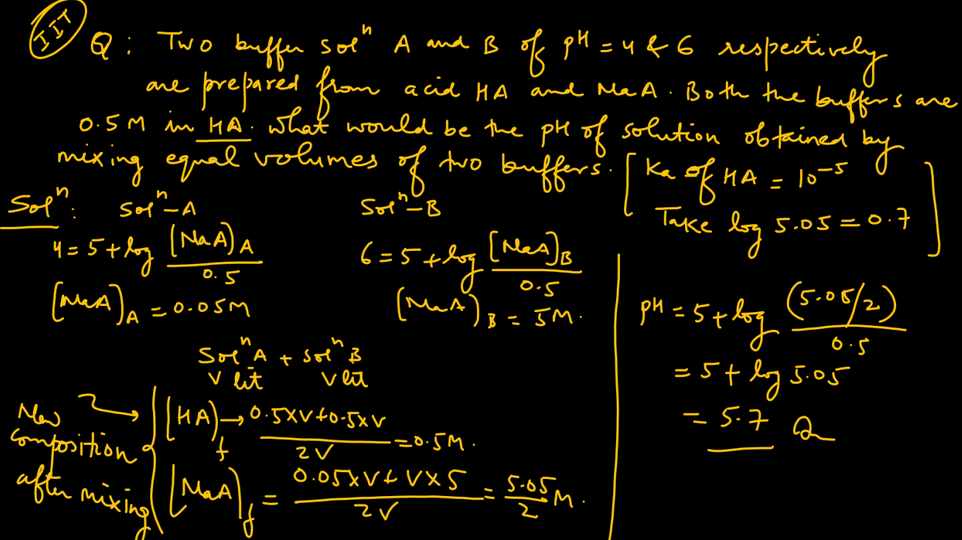 IIT
Q: Two buffer solⁿ A and B of pH = 4 & 6 respectively
are prepared from acid HA and NaA. Both the buffers are
0.5 M in HA. What would be the pH of solution obtained by
mixing equal volumes of two buffers.
[Ka of HA = 10⁻⁵
Take log 5.05 = 0.7]
Solⁿ: Solⁿ-A
4 = 5 + log [NaA]A / 0.5
[NaA]A = 0.05M
Solⁿ-B
6 = 5 + log [NaA]B / 0.5
[NaA]B = 5M.
Solⁿ A + Solⁿ B
V lit V lit
New composition after mixing
[HA]f → (0.5×V+0.5×V) / 2V = 0.5M.
[NaA]f = (0.05×V + V×5) / 2V = 5.05/2 M.
pH = 5 + log (5.05/2) / 0.5
= 5 + log 5.05
= 5.7